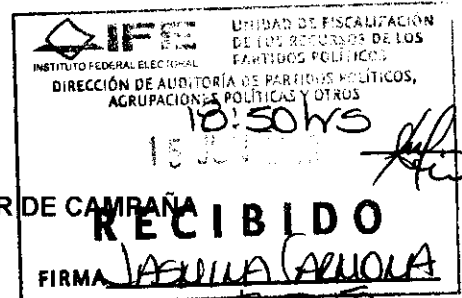 IFE
INSTITUTO FEDERAL ELECTORAL
UNIDAD DE FISCALIZACIÓN
DE LOS RECURSOS DE LOS
PARTIDOS POLÍTICOS
DIRECCIÓN DE AUDITORÍA DE PARTIDOS POLÍTICOS,
AGRUPACIONES POLÍTICAS Y OTROS
18:50 hrs
15
R DE CAMPAÑA
RECIBIDO
FIRMA